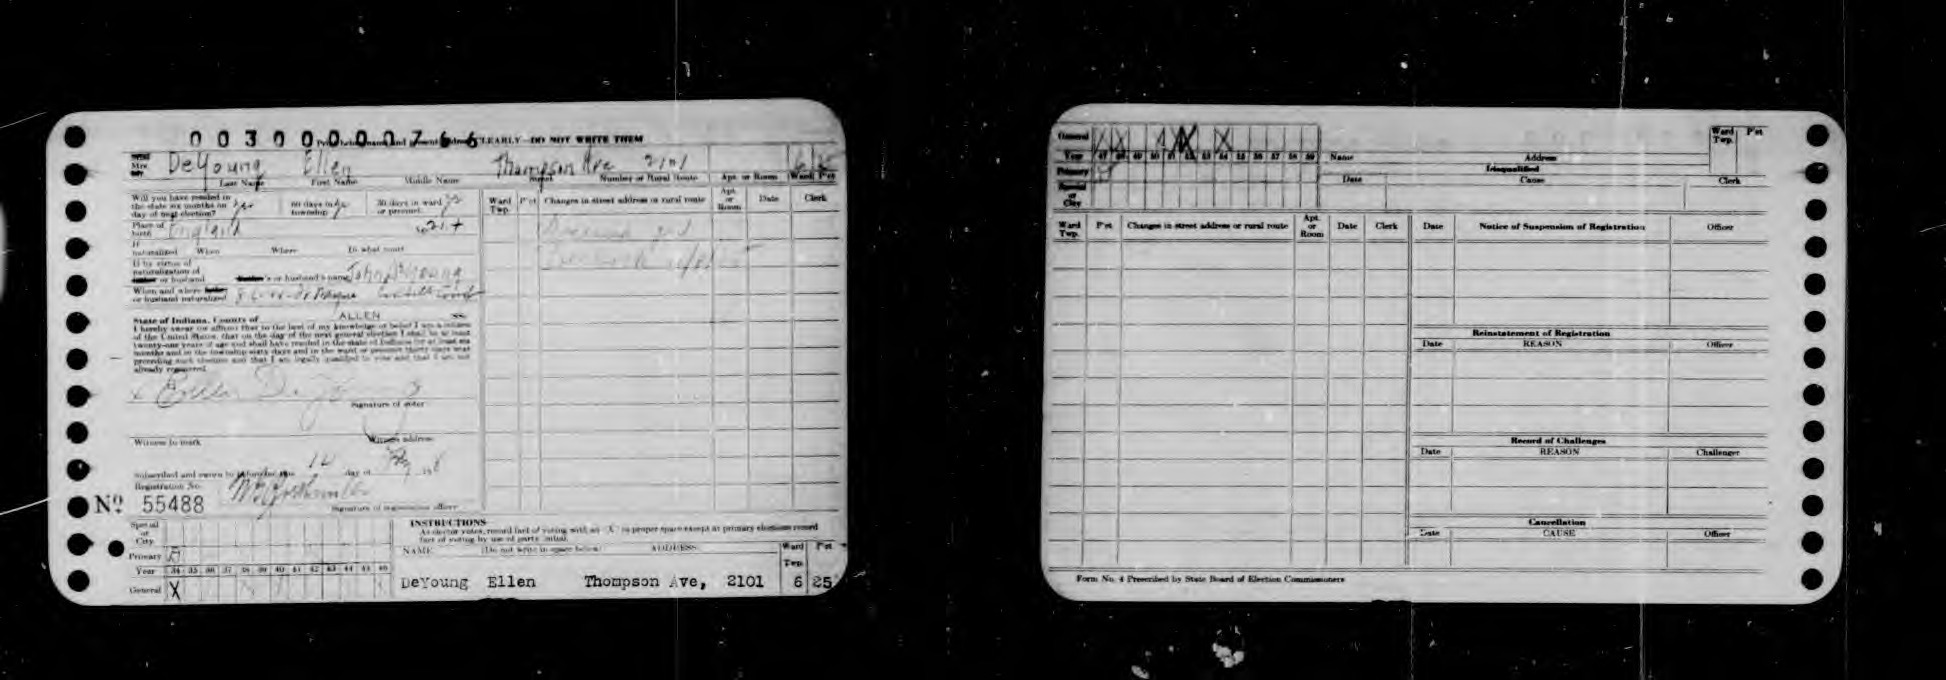 0030000000766 CLEARLY—DO NOT WRITE THEM
Mrs. DeYoung Ellen Thompson Ave 2101
Last Name First Name Middle Name Street Number or Rural Route Apt. or Room Ward Pct
Will you have resided in the state six months on day of next election? yes 60 days in township? 30 days in ward or precinct?
Ward Twp. Pct Changes in street address or rural route Apt. or Room Date Clerk
Place of birth England
If naturalized When Where In what court
If by virtue of naturalization of or husband 's or husband's name John DeYoung
When and where or husband naturalized
State of Indiana, County of ALLEN ss:
I hereby swear (or affirm) that to the best of my knowledge or belief I am a citizen
of the United States, that on the day of the next general election I shall be at least
twenty-one years of age and shall have resided in the state of Indiana for at least six
months and in the township sixty days and in the ward or precinct thirty days next
preceding such election and that I am legally qualified to vote and that I am not
already registered.
x Ellen De Young
Signature of voter
Witness to mark Witness address
Subscribed and sworn to before me this 12 day of
Registration No.
No 55488 Signature of registration officer
Special or City
Primary
Year 34 35 36 37 38 39 40 41 42 43 44 45 46
General X
INSTRUCTIONS
As elector votes, record fact of voting with an "X" in proper space except at primary elections record
fact of voting by use of party initial.
NAME (Do not write in space below) ADDRESS Ward Twp. Pct
DeYoung Ellen Thompson Ave, 2101 6 25
General
Year 47 48 49 50 51 52 53 54 55 56 57 58 59
Primary
Special or City
Name Address Ward Twp. Pct
Disqualified
Date Cause Clerk
Ward Twp. Pct Changes in street address or rural route Apt. or Room Date Clerk
Date Notice of Suspension of Registration Officer
Reinstatement of Registration
Date REASON Officer
Record of Challenges
Date REASON Challenger
Cancellation
Date CAUSE Officer
Form No. 4 Prescribed by State Board of Election Commissioners